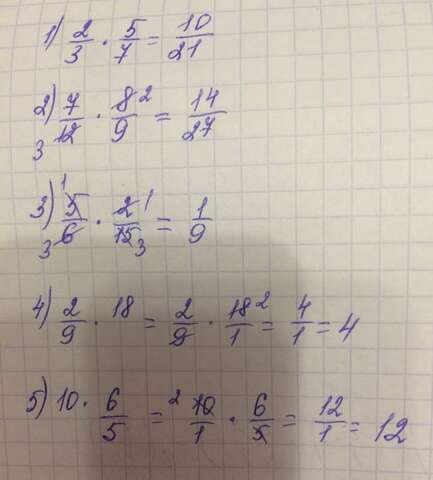 1) 2/3 · 5/7 = 10/21
2) 7/12 3 · 8/9 2 = 14/27
3) 5/6 1 3 · 2/15 1 3 = 1/9
4) 2/9 · 18 = 2/9 · 18/1 2 = 4/1 = 4
5) 10 · 6/5 = 2 10/1 · 6/5 = 12/1 = 12